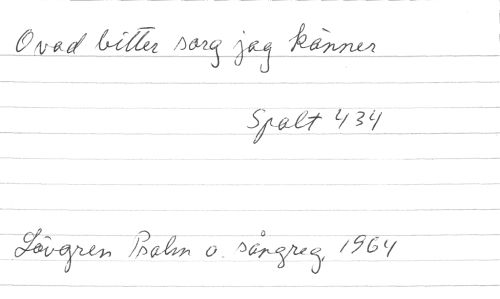 O vad bitter sorg jag känner
Spalt 434
Lövgren Psalm o. sångreg. 1964